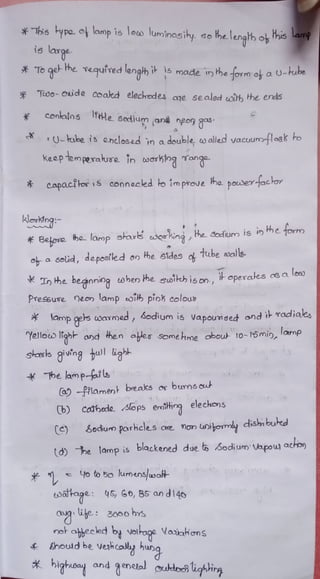 * This type of lamp is low luminosity. so the length of this lamp
is large.
* To get the required length it is made in the form of a U-tube
* Two-oxide coated electrodes are sealed with the ends
* contains little sodium, and neon gas.
* U-tube is enclosed in a double, walled vacuum flask to
keep temperature in working range.
* capacitor is connected to improve the power factor
Working:-
* Before the lamp starts working, the sodium is in the form
of a solid, deposited on the sides of tube walls.
* In the beginning when the switch is on, it operates as a low
Pressure neon lamp with pink colour
* lamp gets warmed, Sodium is vapourised and it radiates
Yellow light and then after sometime about 10-15min, lamp
starts giving full light
* The lamp fails
(a) filament breaks or burns out
(b) cathode stops emitting electrons
(c) Sodium particles are non uniformly distributed
(d) The lamp is blackened due to Sodium vapour action
* η = 40 to 50 lumens/watt
wattage: 45, 60, 85 and 140
avg. life: 3000 hrs
not affected by voltage Variations
* Should be vertically hung
* highway and general outdoor lighting